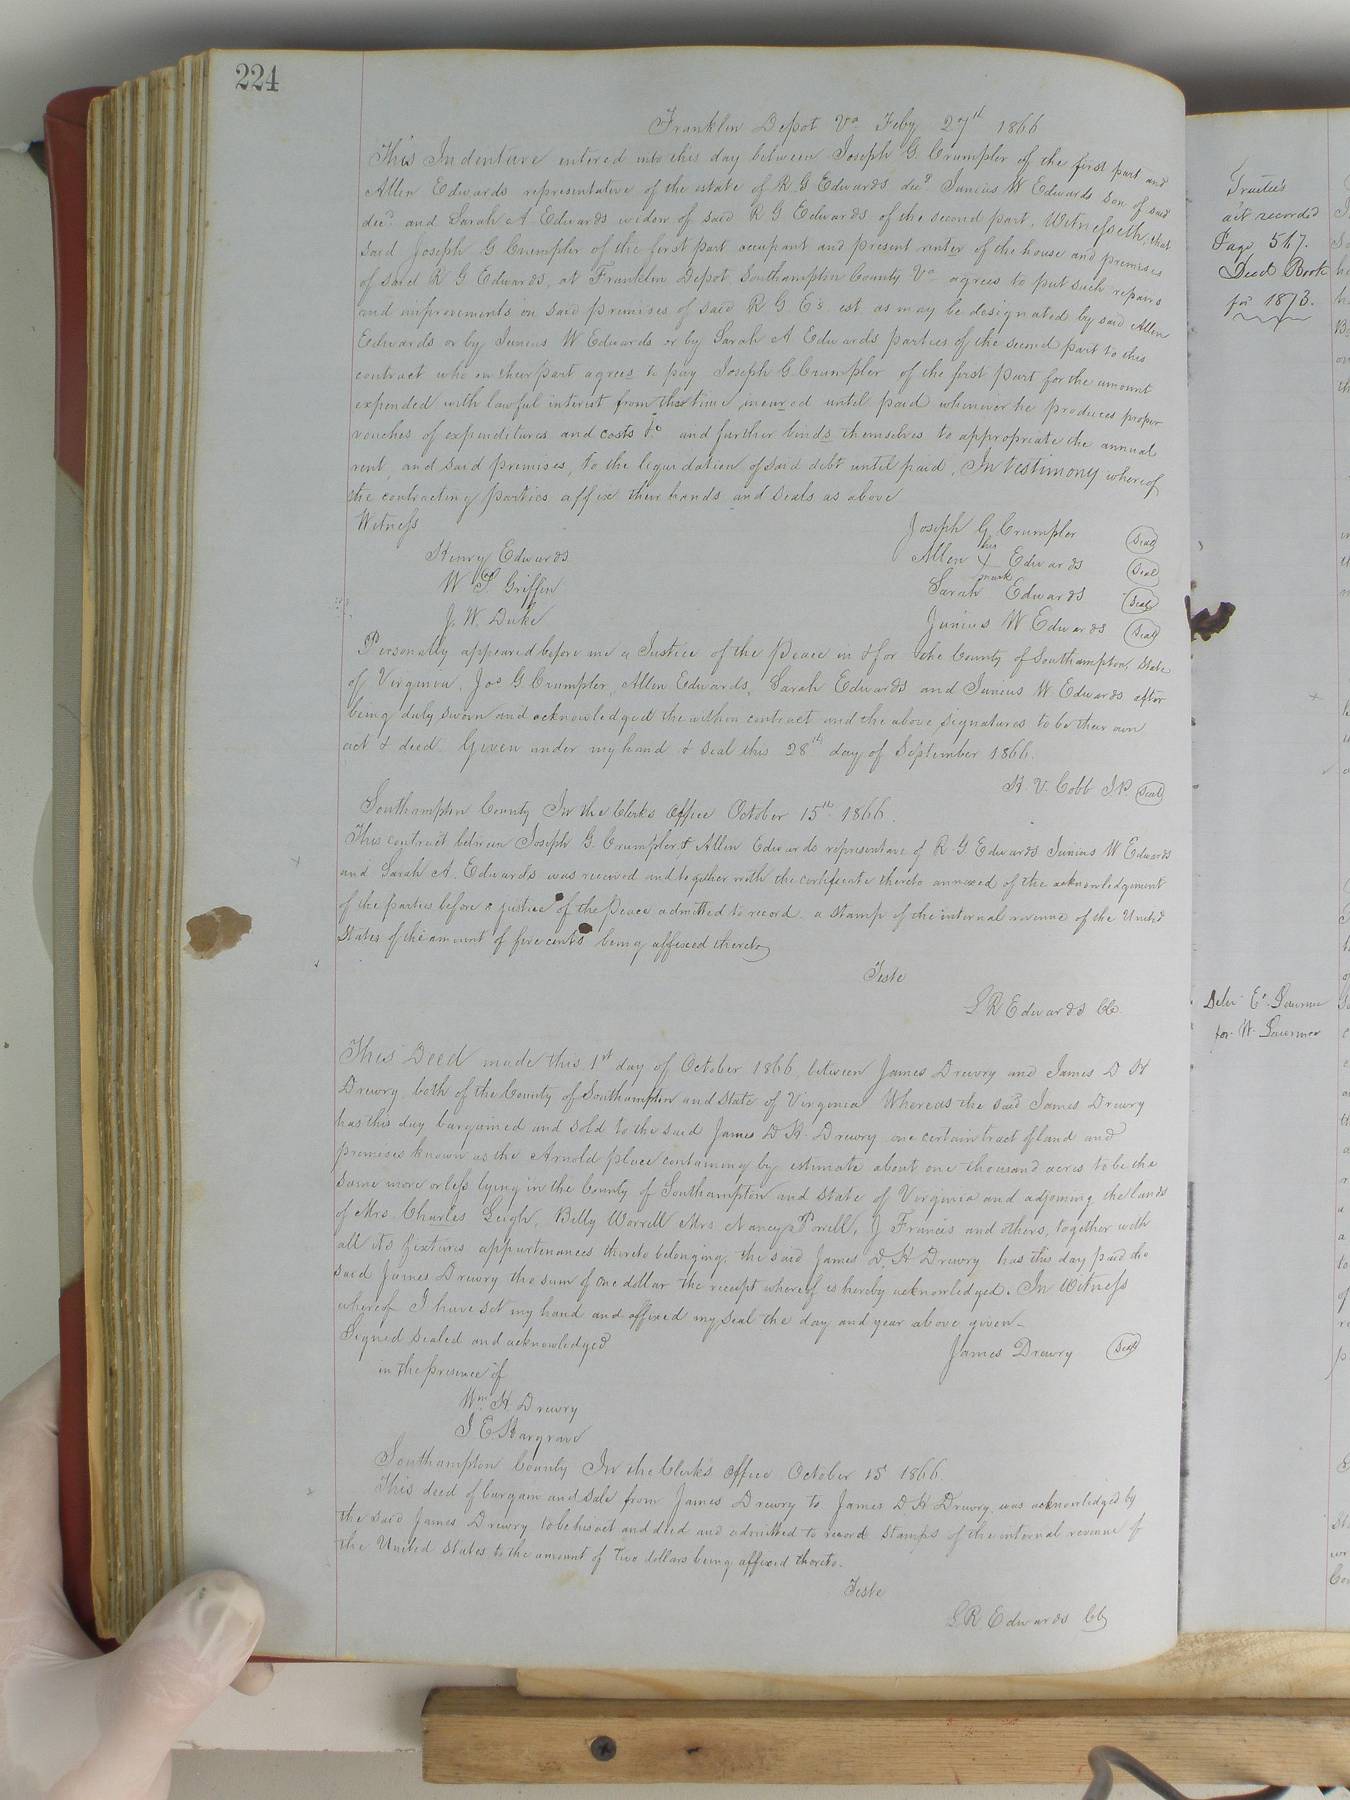 224
Franklin Depot Va Feby 27th 1866
This Indenture entered into this day between Joseph G. Crumpler of the first part and
Allen Edwards representative of the estate of R G Edwards decd Junius W Edwards son of said
decd and Sarah A Edwards widow of said R G Edwards of the second part, Witnesseth, that
said Joseph G Crumpler of the first part occupant and present renter of the house and premises
of said R G Edwards, at Franklin Depot Southampton County Va agrees to put such repairs
and improvements on said premises of said R G E's est. as may be designated by said Allen
Edwards or by Junius W Edwards or by Sarah A Edwards parties of the second part to this
contract who on their part agrees to pay Joseph G Crumpler of the first part for the amount
expended with lawful interest from the time incurred until paid whenever he produces proper
vouches of expenditures and costs &c and further binds themselves to appropriate the annual
rent, and said premises, to the liquidation of said debt until paid, In testimony whereof
the contracting parties affix their hands and seals as above
Witness
Joseph G Crumpler Seal
Henry Edwards
Allen his X mark Edwards Seal
W S Griffin
Sarah Edwards Seal
J. W. Duke
Junius W Edwards Seal
Personally appeared before me a Justice of the Peace in & for the County of Southampton, State
of Virginia, Jos G. Crumpler, Allen Edwards, Sarah Edwards and Junius W. Edwards after
being duly sworn and acknowledged the within contract and the above signatures to be their own
act & deed. Given under my hand & seal this 28th day of September 1866.
V. Cobb JP Seal
Southampton County In the Clerks Office October 15th 1866.
This contract between Joseph G. Crumpler & Allen Edwards representave of R. G Edwards Junius W Edwards
and Sarah A. Edwards was received and together with the certificate thereto annexed of the acknowledgement
of the parties before a justice of the Peace admitted to record a stamp of the internal revenue of the United
States of the amount of five cents being affixed thereto
Teste
L R Edwards CC
This Deed made this 1st day of October 1866, between James Drewry and James D H
Drewry both of the County of Southampton and State of Virginia Whereas the said James Drewry
has this day bargained and sold to the said James D. H. Drewry one certain tract of land and
premises known as the Arnold place containing by estimate about one thousand acres to be the
same more or less lying in the County of Southampton and State of Virginia and adjoining the lands
of Mrs. Charles Leigh, Billy Worrell Mrs Nancy Porrell, J Francis and others, together with
all its fixtures appurtenances thereto belonging, the said James D. H Drewry has this day paid the
said James Drewry the sum of one dollar the receipt whereof is hereby acknowledged. In Witness
whereof I have set my hand and affixed my seal the day and year above given—
Signed sealed and acknowledged
James Drewry Seal
in the presence of
Wm H. Drewry
J E. Hargrave
Southampton County In the Clerk's Office October 15 1866.
This deed of bargain and sale from James Drewry to James D H Drewry was acknowledged by
the said James Drewry to be his act and deed and admitted to record stamps of the internal revenue of
the United States to the amount of Two dollars being affixed thereto.
Teste
L R Edwards CC
Trustee's
act recorded
Page 517.
Deed Book
for 1873.